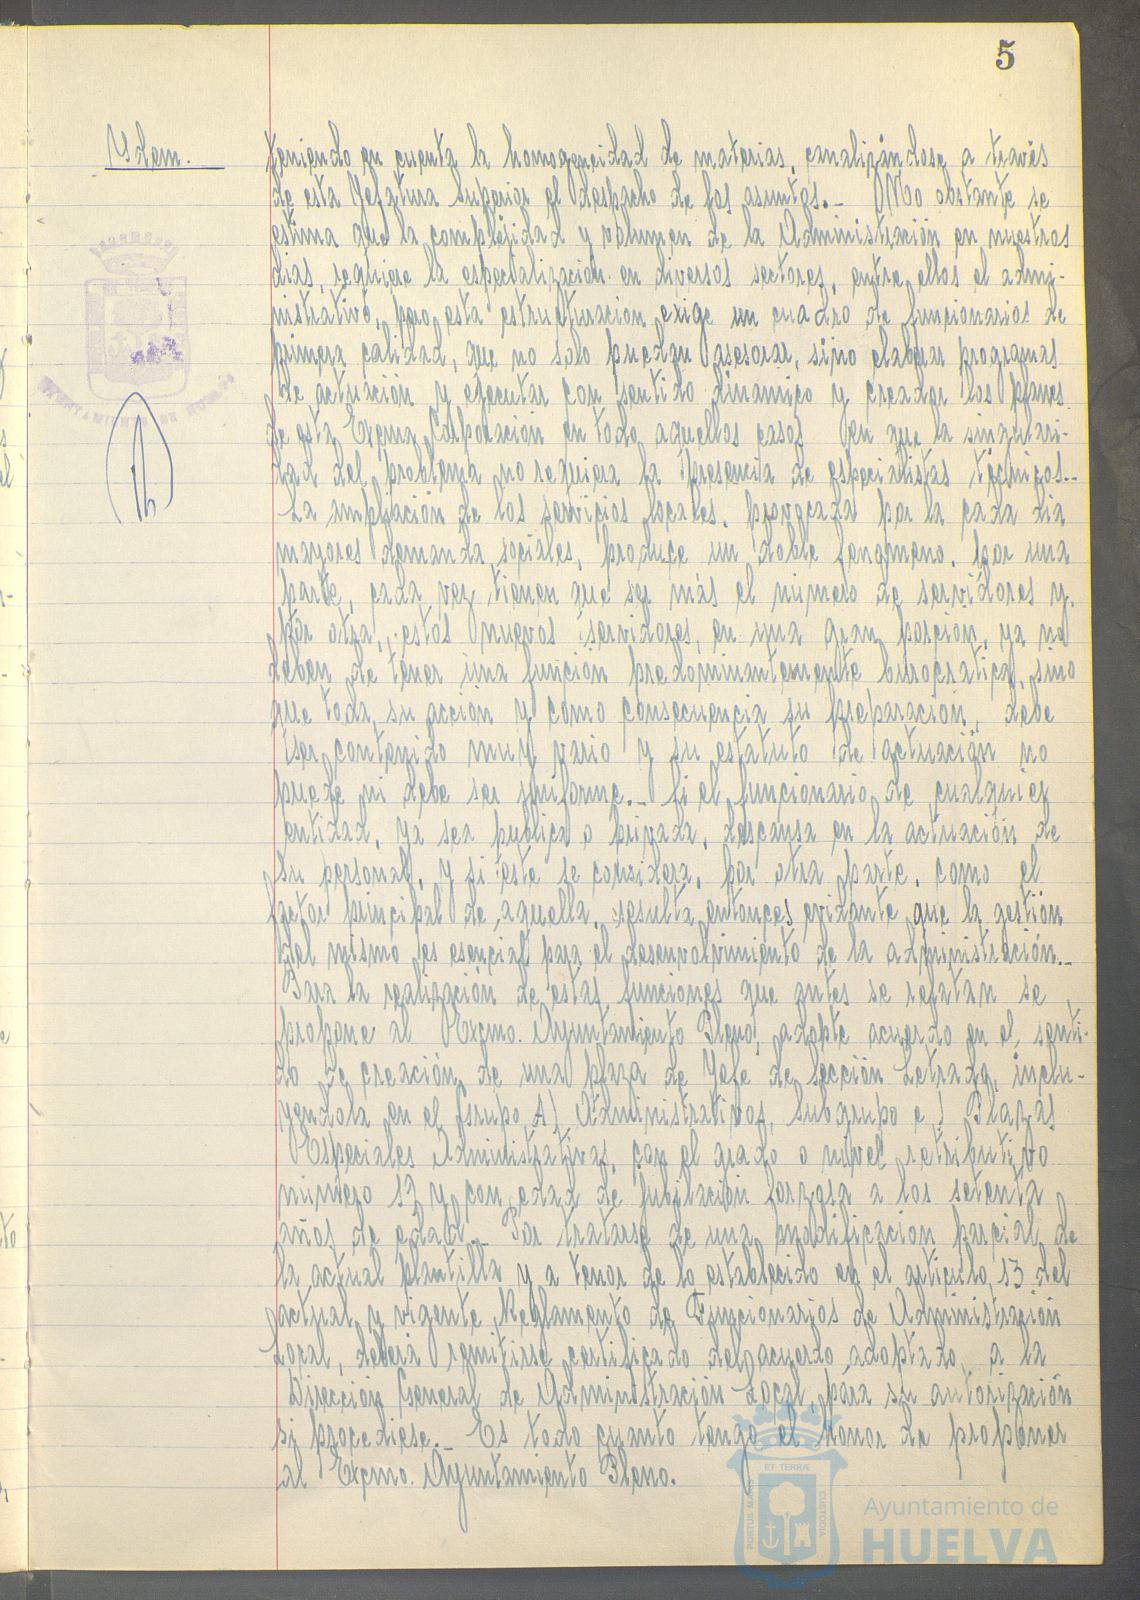 5
Ydem.
teniendo en cuenta la homogeneidad de materias, canalizándose a través
de esta Jefatura Superior el despacho de los asuntos.- No obstante se
estima que la complejidad y volumen de la Administración en nuestros
días, requiere la especialización en diversos sectores, entre ellos el admi-
nistrativo, pero esta estructuración exige un cuadro de funcionarios de
primera calidad, que no solo puedan asesorar, sino elaborar programas
de actuación y ejecutar con sentido dinámico y creador los planes
de esta Excma Corporación en todo aquellos casos en que la singulari-
dad del problema no requiera la presencia de especialistas técnicos.-
La ampliación de los servicios locales, provocada por la cada dia
mayores demanda sociales, produce un doble fenomeno. Por una
parte, cada vez tienen que ser más el número de servidores y,
por otra, estos nuevos servidores, en una gran porción, ya no
deben de tener una función predominantemente burocratica, sino
que toda su acción y como consecuencia su preparación, debe
ser contenido muy vario y su estatuto de actuación no
puede ni debe ser uniforme.- Si el funcionario de cualquier
entidad, ya sea publica o privada, descansa en la actuación de
su personal, y si éste se considera, por otra parte, como el
factor principal de aquella, resulta entonces evidante que la gestión
del mismo es esencial para el desenvolvimiento de la administración.-
Para la realización de estas funciones que antes se relatan se
propone al Excmo. Ayuntamiento Pleno, adopte acuerdo en el senti-
do de creación de una plaza de Jefe de Sección Letrado, inclu-
yendola en el Grupo A) Administrativos, Subgrupo c) Plazas
Especiales Administrativas, con el grado o nivel retributivo
número 17 y con edad de jubilación forzosa a los setenta
años de edad.- Por tratarse de una modificacion parcial de
la actual plantilla y a tenor de lo establecido en el articulo 13 del
actual y vigente Reglamento de Funcionarios de Administración
Local, deberá remitirse certificado del acuerdo adoptado, a la
Dirección General de Administración Local, para su autorización
si procediese.- Es todo cuanto tengo el honor de proponer
al Excmo. Ayuntamiento Pleno.
ET TERRÆ
PORTUS MARIS
CUSTODIA
Ayuntamiento de
HUELVA